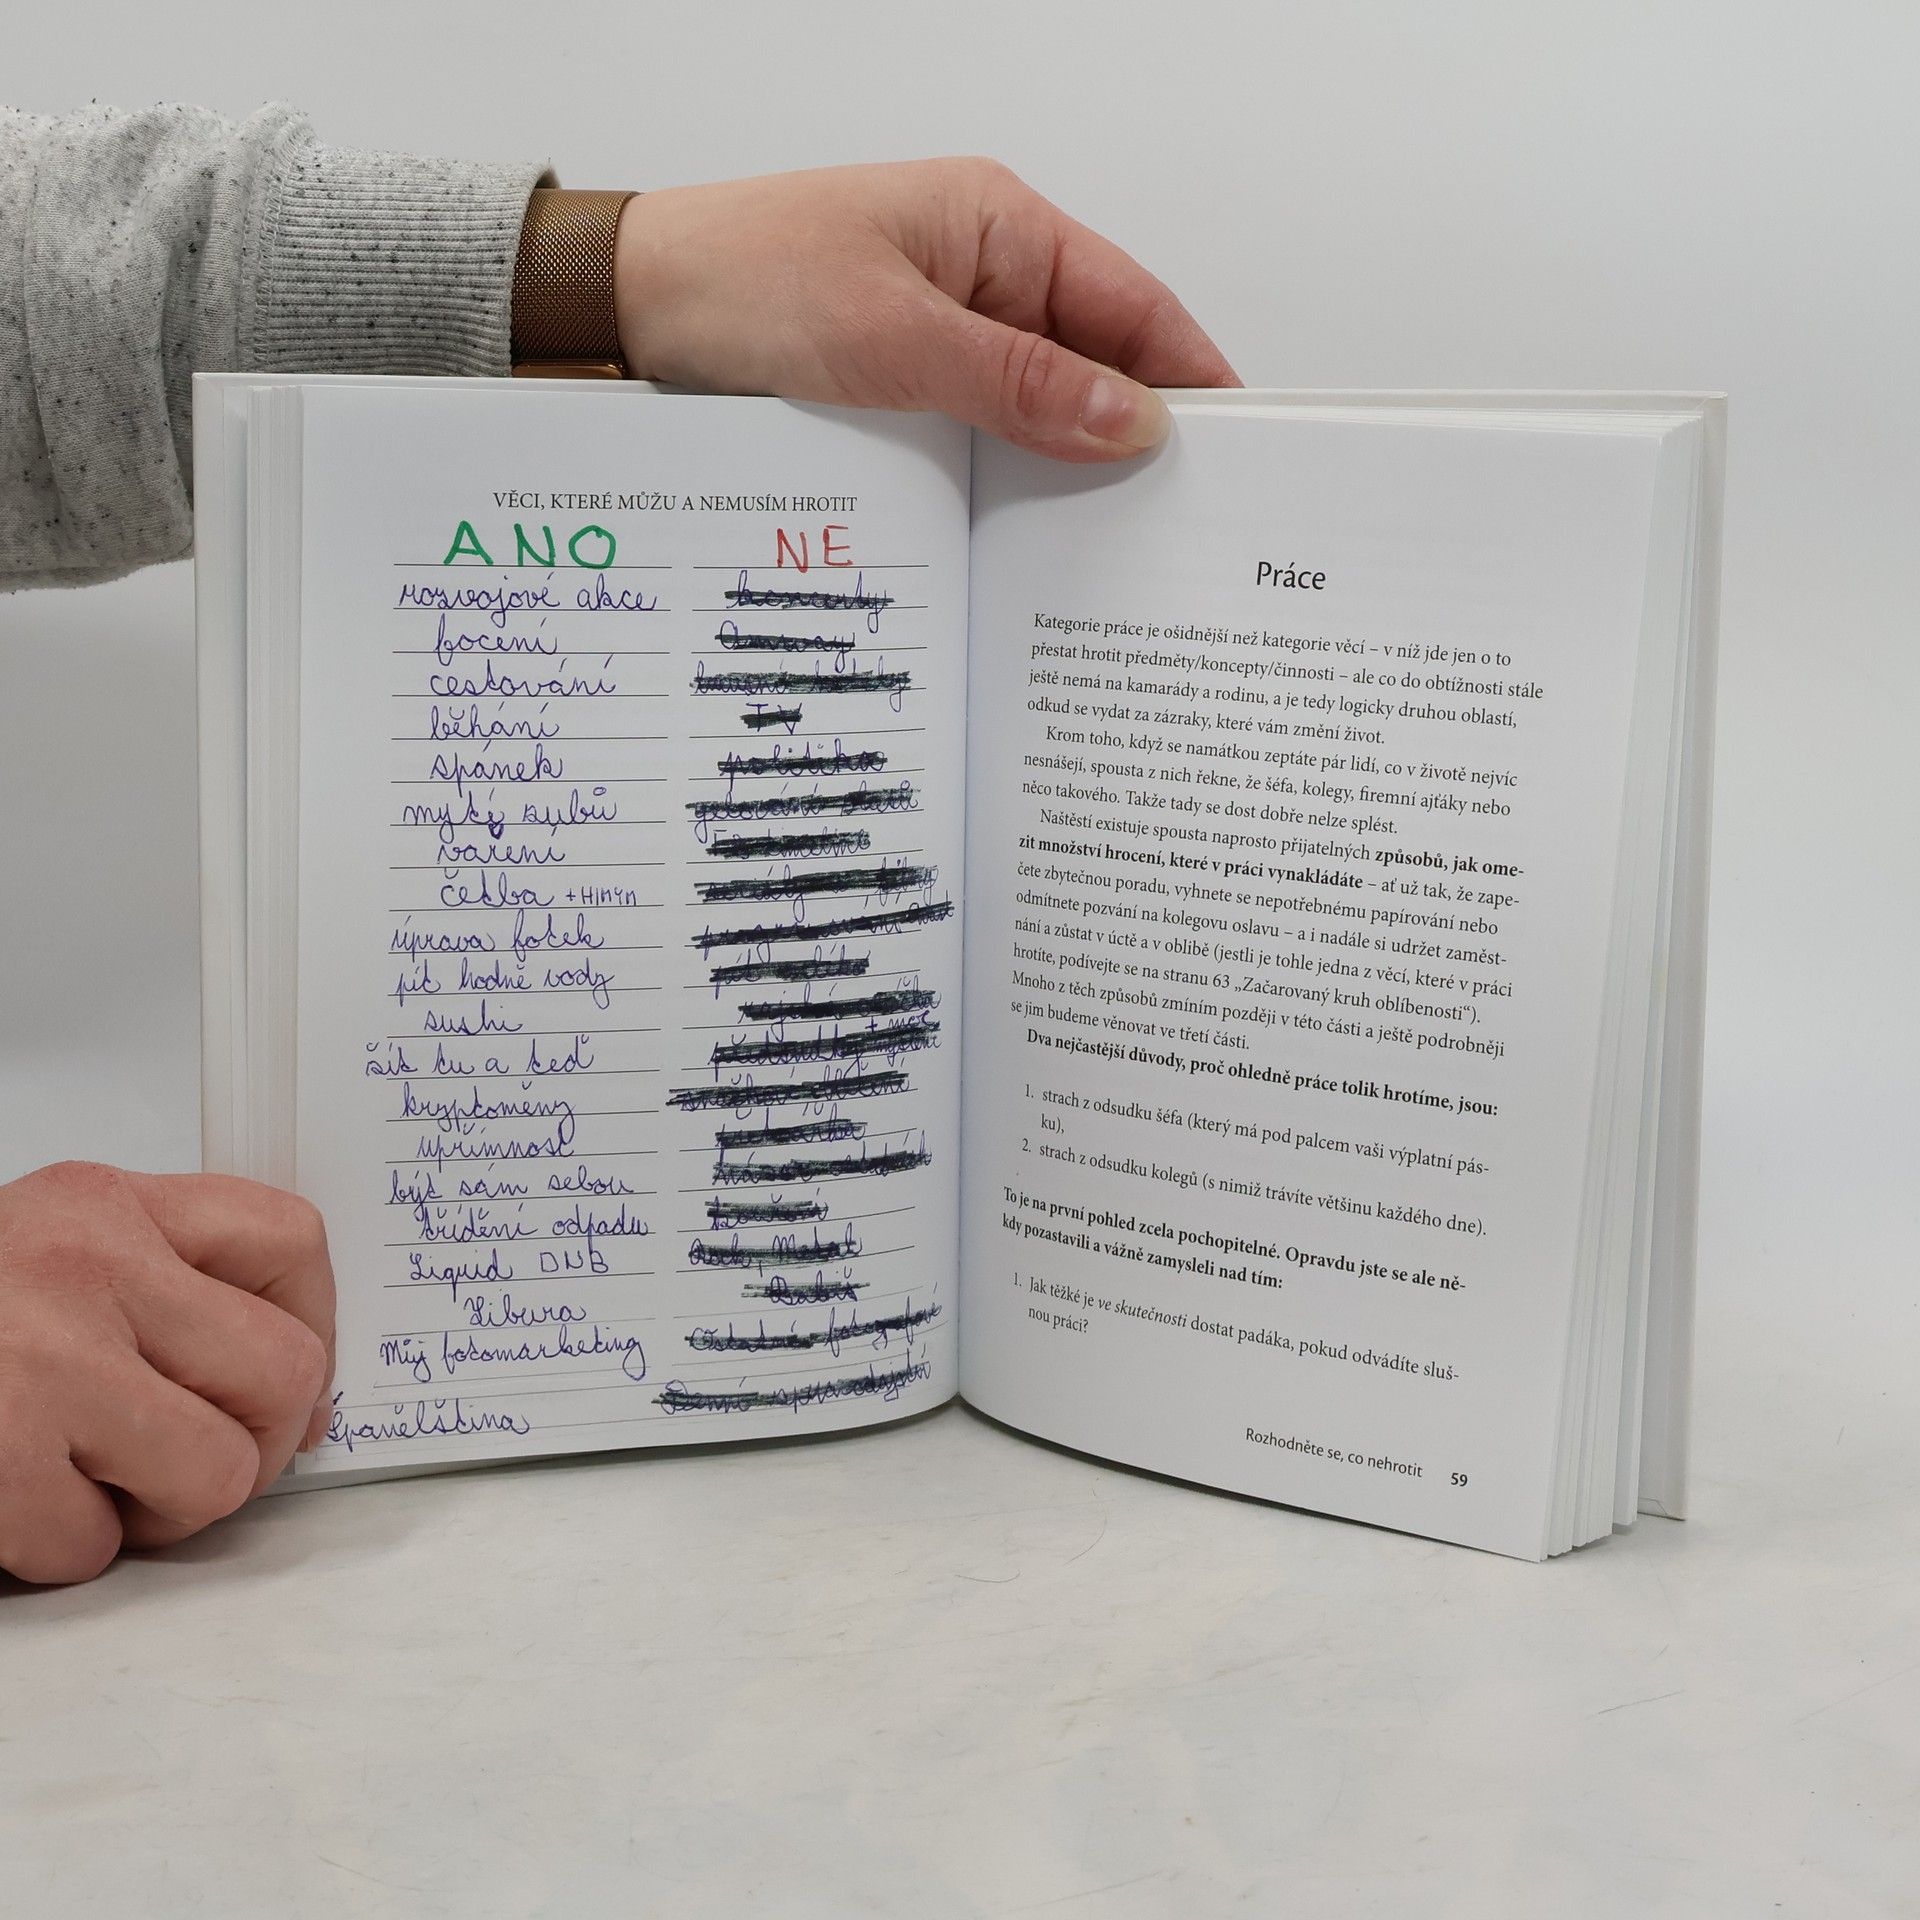 VĚCI, KTERÉ MŮŽU A NEMUSÍM HROTIT
ANO
rozvojové akce
focení
cestování
běhání
spánek
mytí zubů
vaření
četba + H/M/Y/N
úprava fotek
pít hodně vody
sushi
žít tu a teď
kryptoměny
upřímnost
být sám sebou
třídění odpadu
Liquid DNB
Libura
Můj fotomarketing
Španělština
NE
koncerty
Amway
TV
politika
Rock, Metal
Babiš
Ostatní fotografové
Denní zpravodajství
Práce
Kategorie práce je ošidnější než kategorie věcí – v níž jde jen o to
přestat hrotit předměty/koncepty/činnosti – ale co do obtížnosti stále
ještě nemá na kamarády a rodinu, a je tedy logicky druhou oblastí,
odkud se vydat za zázraky, které vám změní život.
Krom toho, když se namátkou zeptáte pár lidí, co v životě nejvíc
nesnášejí, spousta z nich řekne, že šéfa, kolegy, firemní ajťáky nebo
něco takového. Takže tady se dost dobře nelze splést.
Naštěstí existuje spousta naprosto přijatelných způsobů, jak ome-
zit množství hrocení, které v práci vynakládáte – ať už tak, že zape-
čete zbytečnou poradu, vyhnete se nepotřebnému papírování nebo
odmítnete pozvání na kolegovu oslavu – a i nadále si udržet zaměst-
nání a zůstat v úctě a v oblibě (jestli je tohle jedna z věcí, které v práci
hrotíte, podívejte se na stranu 63 „Začarovaný kruh oblíbenosti“).
Mnoho z těch způsobů zmíním později v této části a ještě podrobněji
se jim budeme věnovat ve třetí části.
Dva nejčastější důvody, proč ohledně práce tolik hrotíme, jsou:
1. strach z odsudku šéfa (který má pod palcem vaši výplatní pás-
ku),
2. strach z odsudku kolegů (s nimiž trávíte většinu každého dne).
To je na první pohled zcela pochopitelné. Opravdu jste se ale ně-
kdy pozastavili a vážně zamysleli nad tím:
1. Jak těžké je ve skutečnosti dostat padáka, pokud odvádíte sluš-
nou práci?
Rozhodněte se, co nehrotit 59